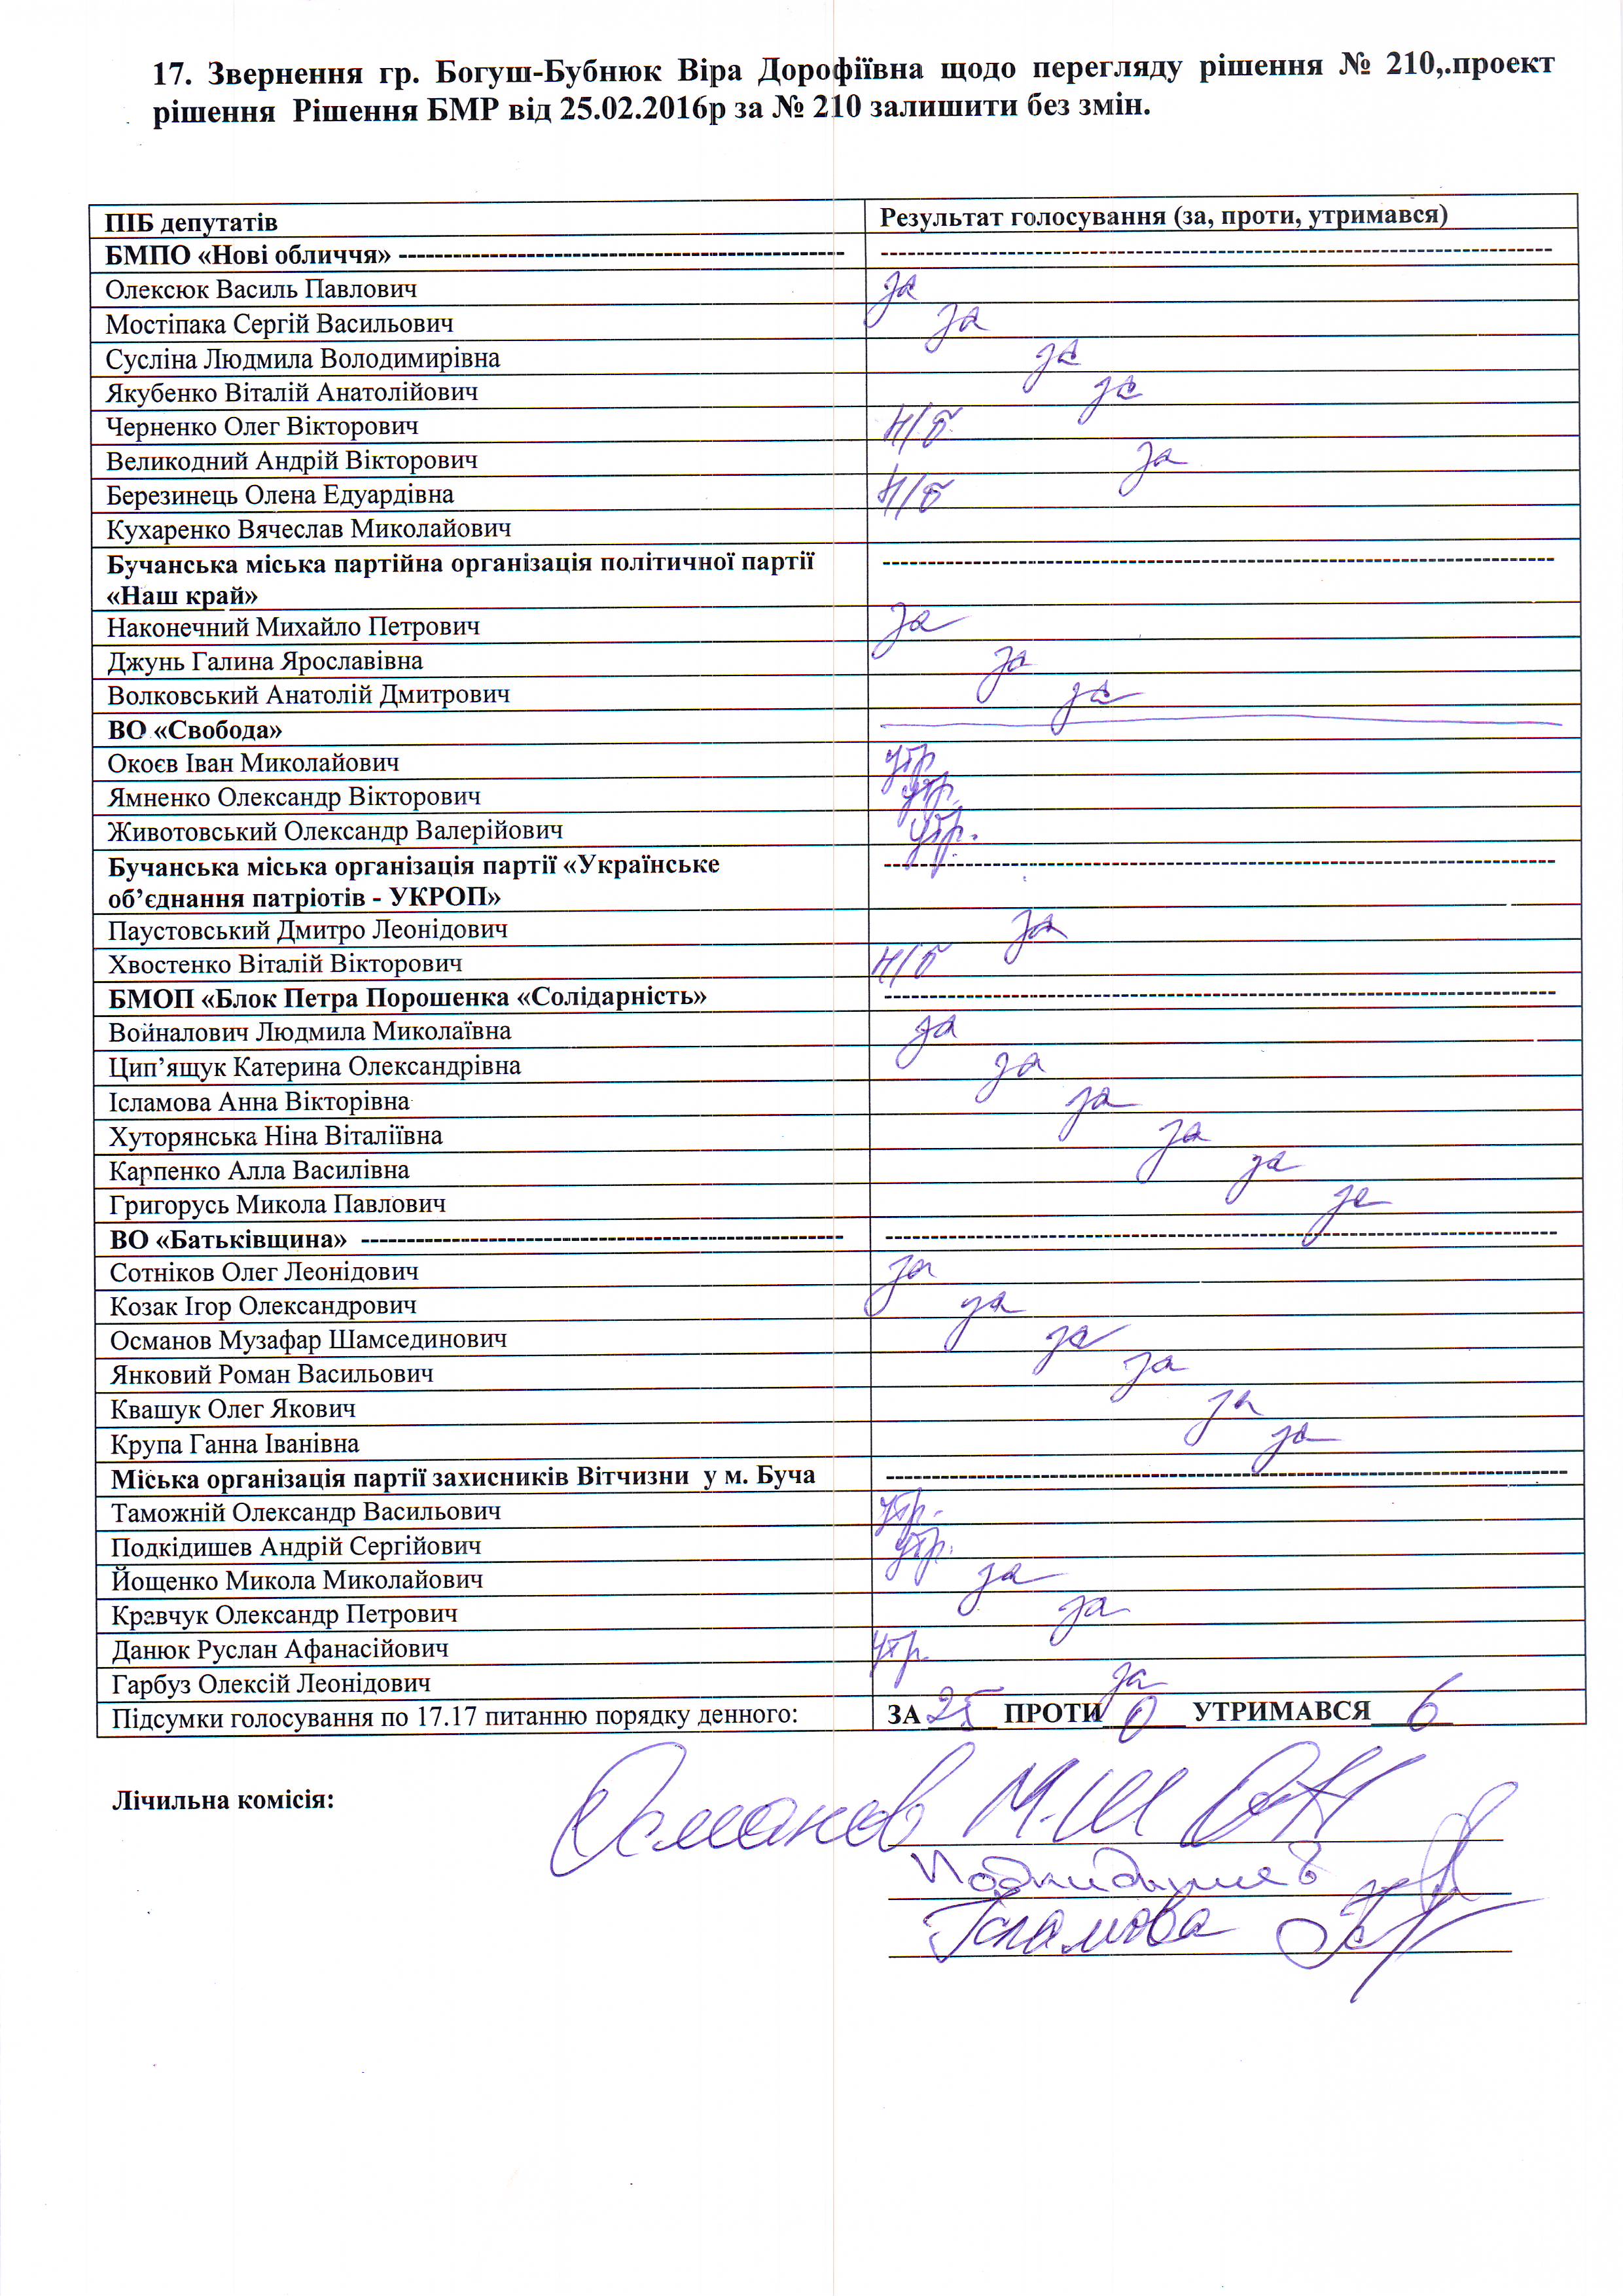 17. Звернення гр. Богуш-Бубнюк Віра Дорофіївна щодо перегляду рішення № 210,.проект
рішення Рішення БМР від 25.02.2016р за № 210 залишити без змін.
ПІБ депутатів Результат голосування (за, проти, утримався)
БМПО «Нові обличчя» ------------------------------------------------- --------------------------------------------------------------------------
Олексюк Василь Павлович за
Мостіпака Сергій Васильович за
Сусліна Людмила Володимирівна за
Якубенко Віталій Анатолійович за
Черненко Олег Вікторович н/б
Великодний Андрій Вікторович за
Березинець Олена Едуардівна н/б
Кухаренко Вячеслав Миколайович
Бучанська міська партійна організація політичної партії --------------------------------------------------------------------------
«Наш край»
Наконечний Михайло Петрович за
Джунь Галина Ярославівна за
Волковський Анатолій Дмитрович за
ВО «Свобода»
Окоєв Іван Миколайович утр
Ямненко Олександр Вікторович утр.
Животовський Олександр Валерійович утр.
Бучанська міська організація партії «Українське --------------------------------------------------------------------------
об’єднання патріотів - УКРОП»
Паустовський Дмитро Леонідович за
Хвостенко Віталій Вікторович н/б
БМОП «Блок Петра Порошенка «Солідарність» --------------------------------------------------------------------------
Войналович Людмила Миколаївна за
Цип’ящук Катерина Олександрівна за
Ісламова Анна Вікторівна за
Хуторянська Ніна Віталіївна за
Карпенко Алла Василівна за
Григорусь Микола Павлович за
ВО «Батьківщина» ----------------------------------------------------- --------------------------------------------------------------------------
Сотніков Олег Леонідович за
Козак Ігор Олександрович за
Османов Музафар Шамсединович за
Янковий Роман Васильович за
Квашук Олег Якович за
Крупа Ганна Іванівна за
Міська організація партії захисників Вітчизни у м. Буча ---------------------------------------------------------------------------
Таможній Олександр Васильович утр.
Подкідишев Андрій Сергійович утр.
Йощенко Микола Миколайович за
Кравчук Олександр Петрович за
Данюк Руслан Афанасійович утр.
Гарбуз Олексій Леонідович за
Підсумки голосування по 17.17 питанню порядку денного: ЗА 25 ПРОТИ 0 УТРИМАВСЯ 6
Лічильна комісія: Османов М.Ш
Подкидышев
Ісламова